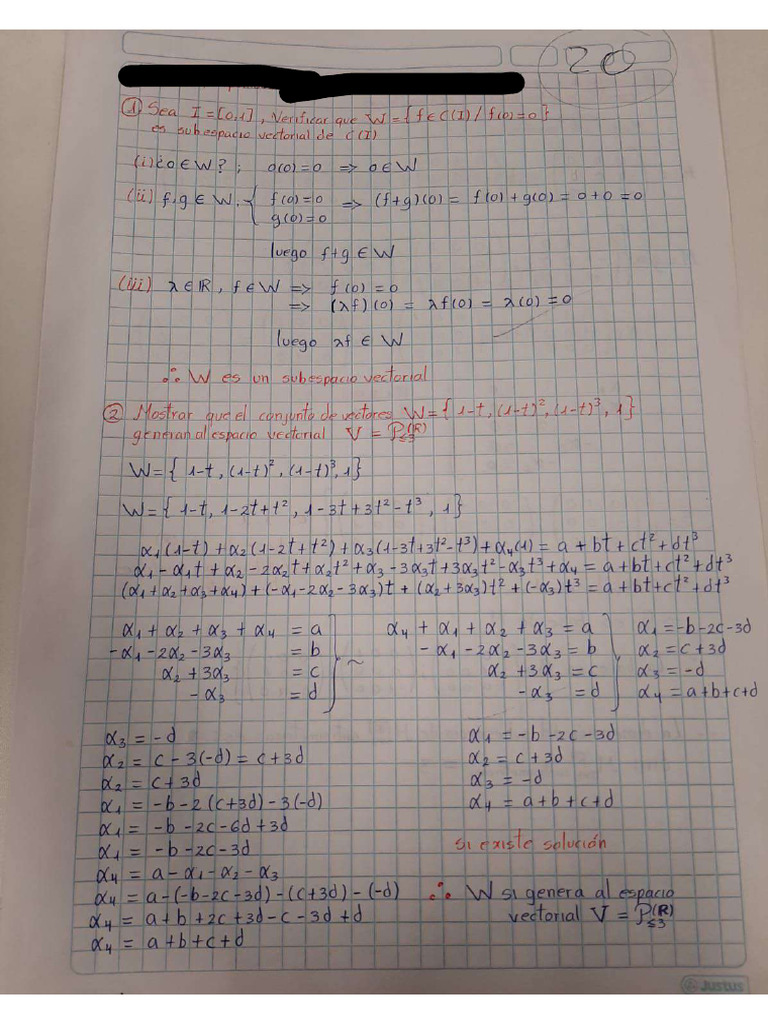 20
① Sea I = [0,1], Verificar que W = { f ∈ C(I) / f(0) = 0 }
es subespacio vectorial de C(I)
(i) ¿0 ∈ W? ; 0(0) = 0 => 0 ∈ W
(ii) f, g ∈ W. { f(0) = 0 => (f+g)(0) = f(0) + g(0) = 0 + 0 = 0
g(0) = 0
luego f+g ∈ W
(iii) λ ∈ ℝ, f ∈ W => f(0) = 0
=> (λf)(0) = λf(0) = λ(0) = 0
luego λf ∈ W
∴ W es un subespacio vectorial
② Mostrar que el conjunto de vectores W = { 1-t, (1-t)², (1-t)³, 1 }
generan al espacio vectorial V = P≤3(ℝ)
W = { 1-t, (1-t)², (1-t)³, 1 }
W = { 1-t, 1-2t+t², 1-3t+3t²-t³, 1 }
α₁(1-t) + α₂(1-2t+t²) + α₃(1-3t+3t²-t³) + α₄(1) = a + bt + ct² + dt³
α₁ - α₁t + α₂ - 2α₂t + α₂t² + α₃ - 3α₃t + 3α₃t² - α₃t³ + α₄ = a + bt + ct² + dt³
(α₁ + α₂ + α₃ + α₄) + (-α₁ - 2α₂ - 3α₃)t + (α₂ + 3α₃)t² + (-α₃)t³ = a + bt + ct² + dt³
α₁ + α₂ + α₃ + α₄ = a
-α₁ - 2α₂ - 3α₃ = b
α₂ + 3α₃ = c
- α₃ = d
~
α₄ + α₁ + α₂ + α₃ = a
- α₁ - 2α₂ - 3α₃ = b
α₂ + 3α₃ = c
- α₃ = d
α₁ = -b - 2c - 3d
α₂ = c + 3d
α₃ = -d
α₄ = a + b + c + d
α₃ = -d
α₂ = c - 3(-d) = c + 3d
α₂ = c + 3d
α₁ = -b - 2(c+3d) - 3(-d)
α₁ = -b - 2c - 6d + 3d
α₁ = -b - 2c - 3d
α₄ = a - α₁ - α₂ - α₃
α₄ = a - (-b - 2c - 3d) - (c+3d) - (-d)
α₄ = a + b + 2c + 3d - c - 3d + d
α₄ = a + b + c + d
α₁ = -b - 2c - 3d
α₂ = c + 3d
α₃ = -d
α₄ = a + b + c + d
si existe solución
∴ W si genera al espacio
vectorial V = P≤3(ℝ)
Justus